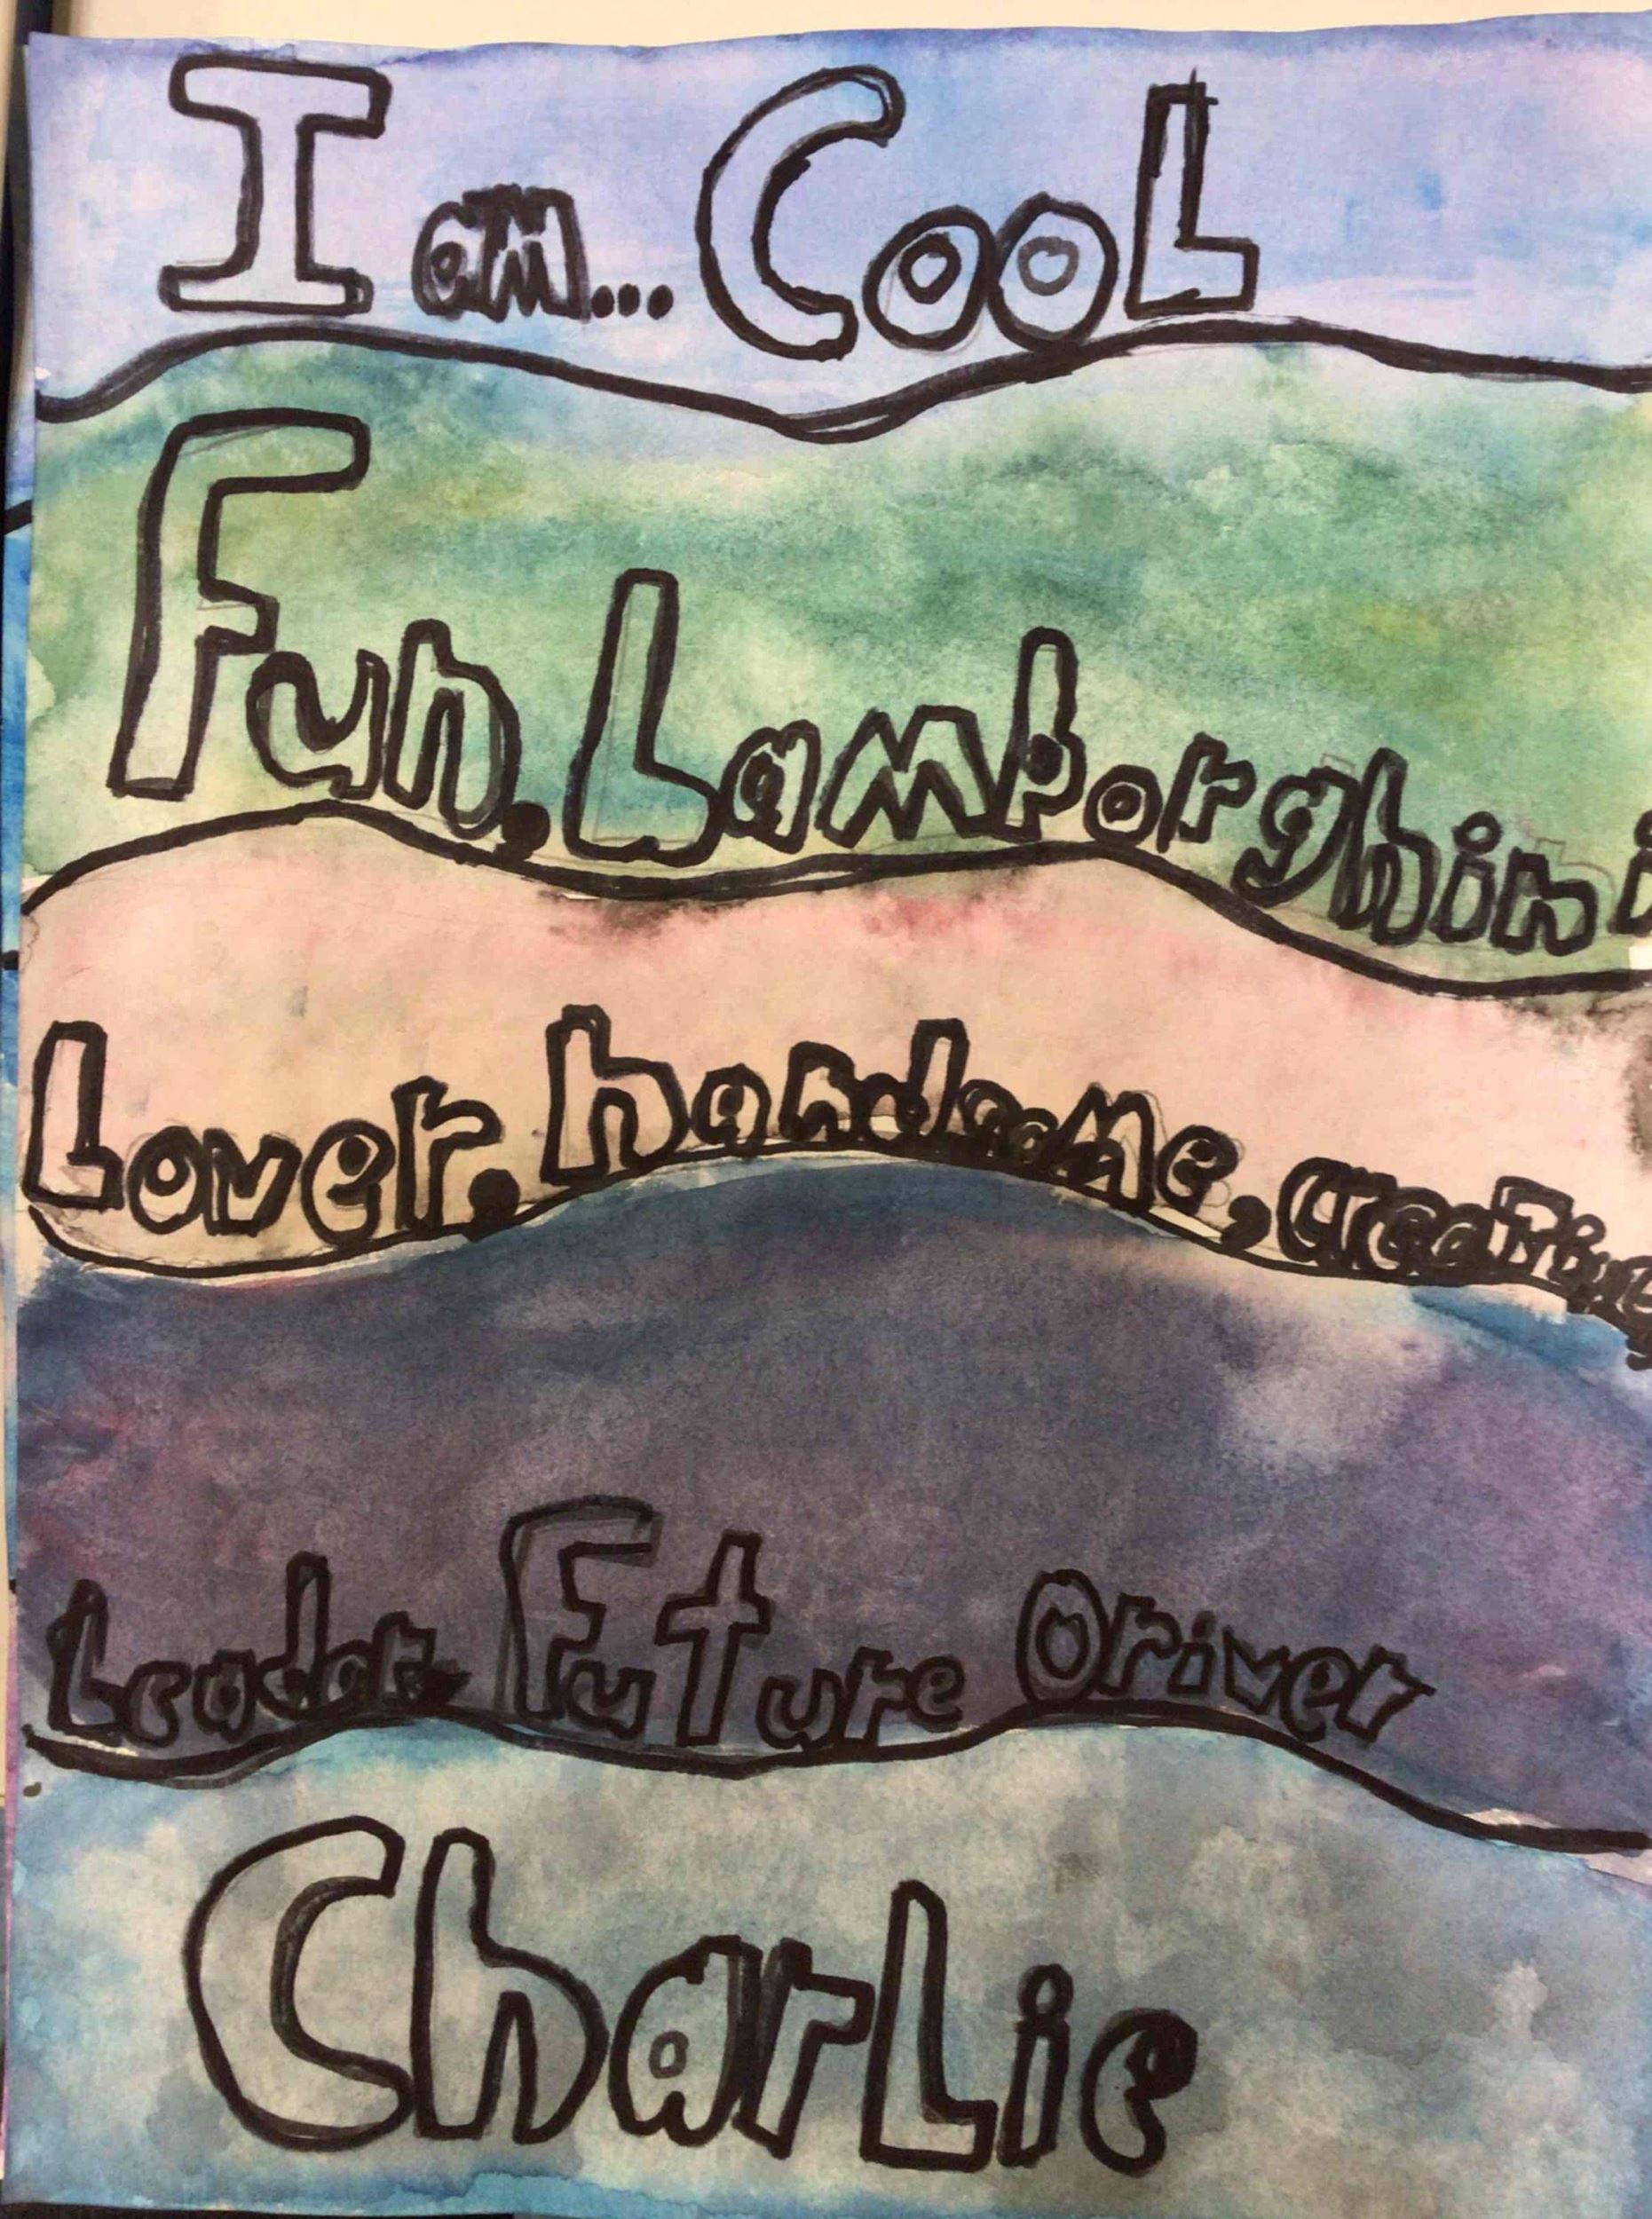 I am... CooL
Fun, Lamborghini
Lover, handsome, creative,
Leader Future Driver
CharLie